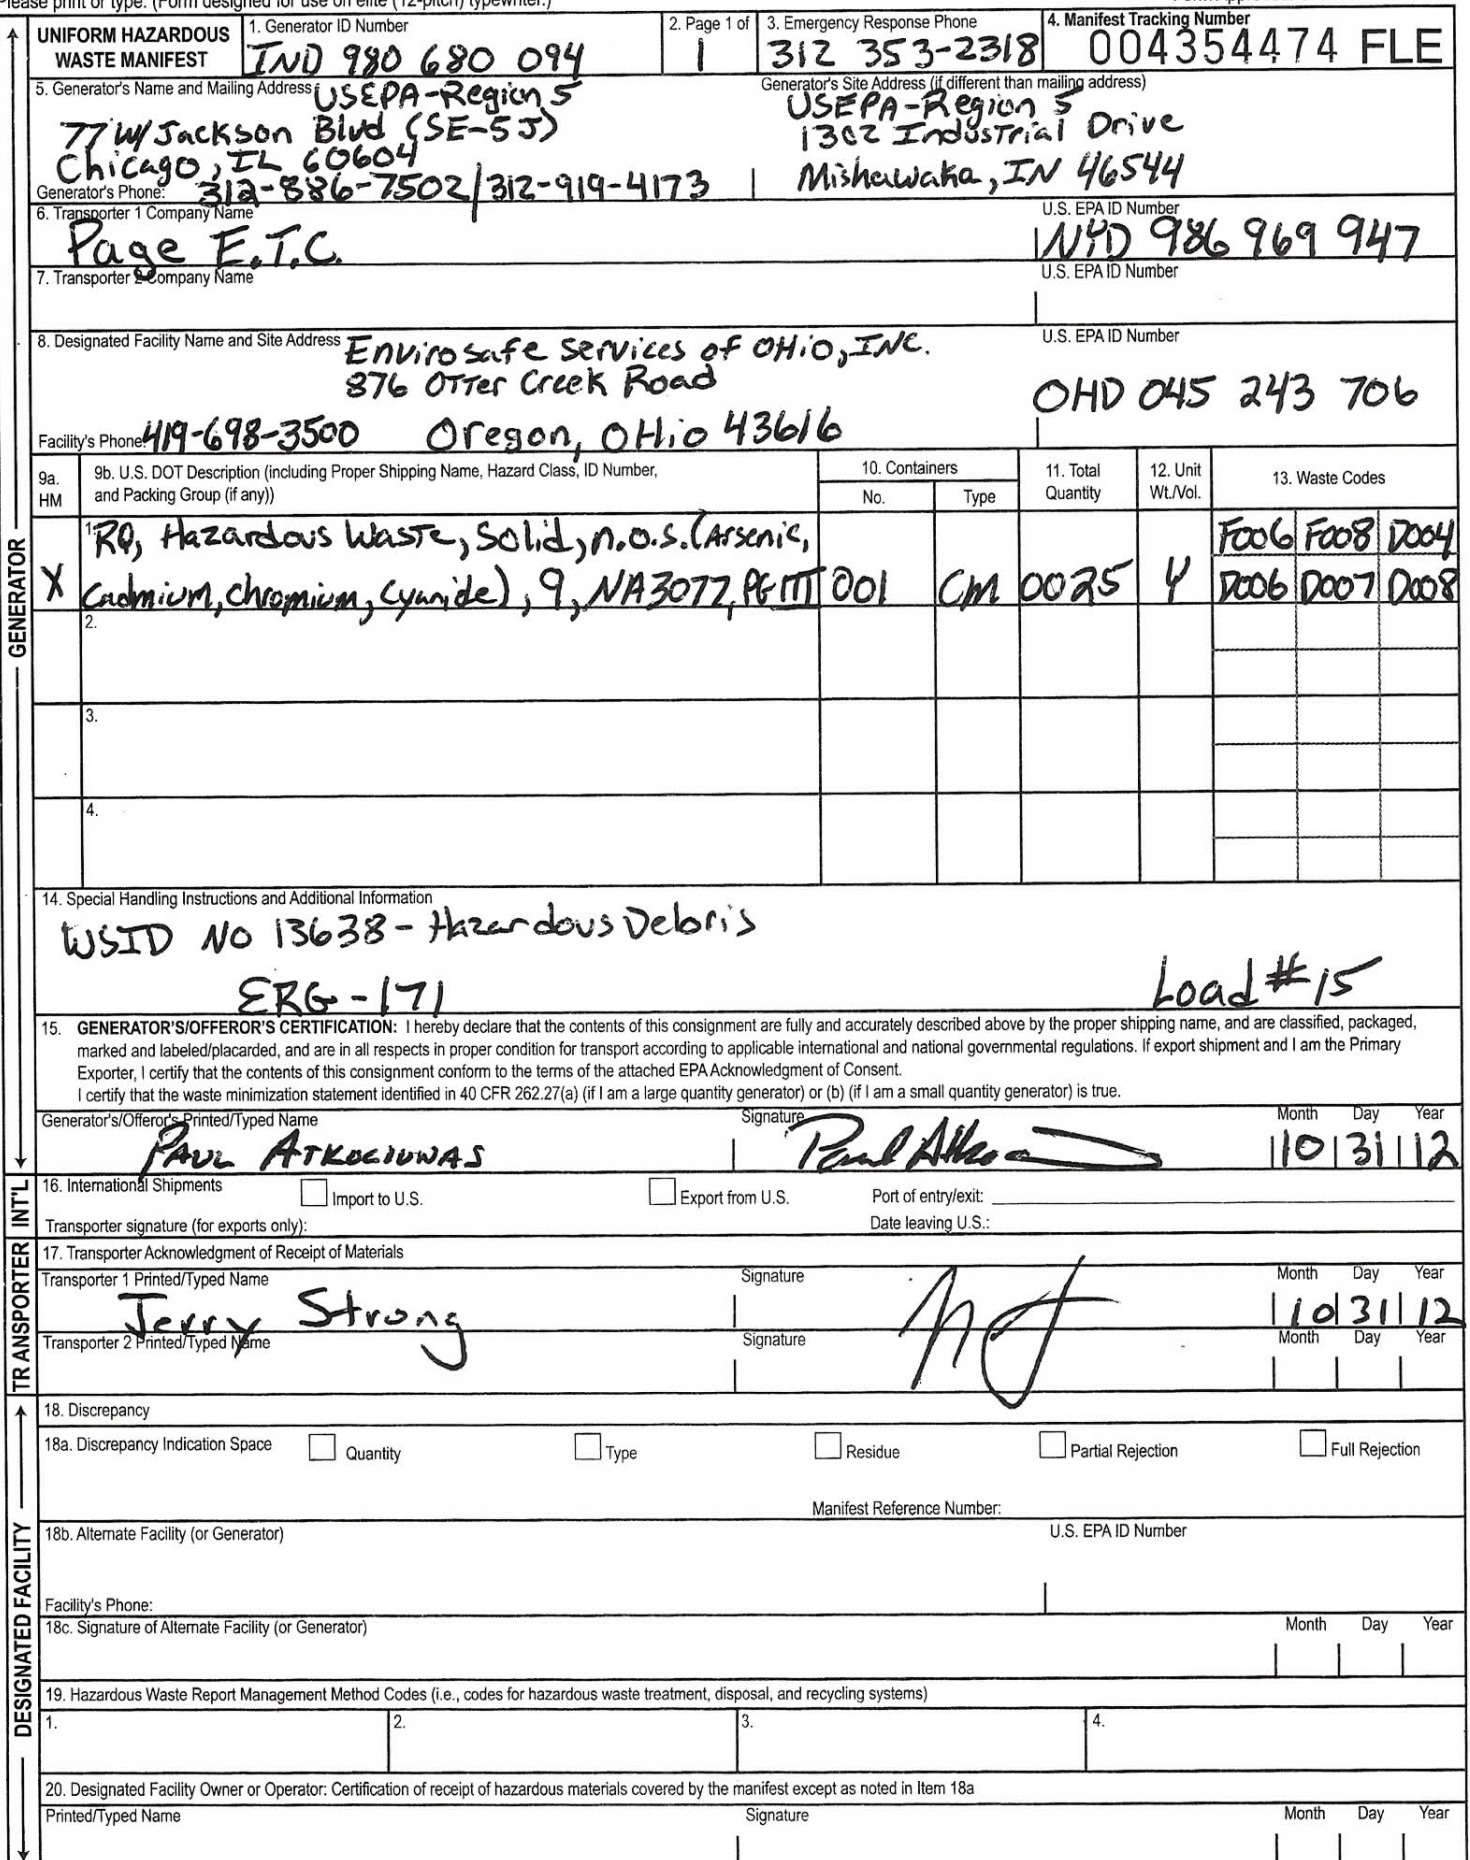 Please print or type. (Form designed for use on elite (12-pitch) typewriter.)
UNIFORM HAZARDOUS WASTE MANIFEST
1. Generator ID Number
IND 980 680 094
2. Page 1 of
1
3. Emergency Response Phone
312 353-2318
4. Manifest Tracking Number
004354474 FLE
5. Generator's Name and Mailing Address USEPA-Region 5
77 W Jackson Blvd (SE-5J)
Chicago, IL 60604
Generator's Phone: 312-886-7502/312-919-4173
Generator's Site Address (if different than mailing address)
USEPA-Region 5
1302 Industrial Drive
Mishawaka, IN 46544
6. Transporter 1 Company Name
Page E.T.C.
U.S. EPA ID Number
NYD 986 969 947
7. Transporter 2 Company Name
U.S. EPA ID Number
8. Designated Facility Name and Site Address Envirosafe Services of OHiO, INC.
876 Otter Creek Road
Facility's Phone: 419-698-3500 Oregon, OHio 43616
U.S. EPA ID Number
OHD 045 243 706
9a. HM
9b. U.S. DOT Description (including Proper Shipping Name, Hazard Class, ID Number, and Packing Group (if any))
10. Containers
No.
Type
11. Total Quantity
12. Unit Wt./Vol.
13. Waste Codes
1. RQ, Hazardous Waste, Solid, n.o.s. (Arsenic,
X Cadmium, chromium, Cyanide), 9, NA3077, PG III 001 CM 0025 Y
F006 F008 D004
D006 D007 D008
2.
3.
4.
14. Special Handling Instructions and Additional Information
WSID NO 13638 - Hazardous Debris
ERG - 171
Load #15
15. GENERATOR'S/OFFEROR'S CERTIFICATION: I hereby declare that the contents of this consignment are fully and accurately described above by the proper shipping name, and are classified, packaged,
marked and labeled/placarded, and are in all respects in proper condition for transport according to applicable international and national governmental regulations. If export shipment and I am the Primary
Exporter, I certify that the contents of this consignment conform to the terms of the attached EPA Acknowledgment of Consent.
I certify that the waste minimization statement identified in 40 CFR 262.27(a) (if I am a large quantity generator) or (b) (if I am a small quantity generator) is true.
Generator's/Offeror's Printed/Typed Name
PAUL ATKOCIUNAS
Signature
Month Day Year
10 31 12
16. International Shipments
Import to U.S.
Export from U.S.
Port of entry/exit:
Transporter signature (for exports only):
Date leaving U.S.:
17. Transporter Acknowledgment of Receipt of Materials
Transporter 1 Printed/Typed Name
Jerry Strong
Signature
Month Day Year
10 31 12
Transporter 2 Printed/Typed Name
Signature
Month Day Year
18. Discrepancy
18a. Discrepancy Indication Space
Quantity
Type
Residue
Partial Rejection
Full Rejection
Manifest Reference Number:
18b. Alternate Facility (or Generator)
U.S. EPA ID Number
Facility's Phone:
18c. Signature of Alternate Facility (or Generator)
Month Day Year
19. Hazardous Waste Report Management Method Codes (i.e., codes for hazardous waste treatment, disposal, and recycling systems)
1.
2.
3.
4.
20. Designated Facility Owner or Operator: Certification of receipt of hazardous materials covered by the manifest except as noted in Item 18a
Printed/Typed Name
Signature
Month Day Year
GENERATOR
INT'L
TRANSPORTER
DESIGNATED FACILITY